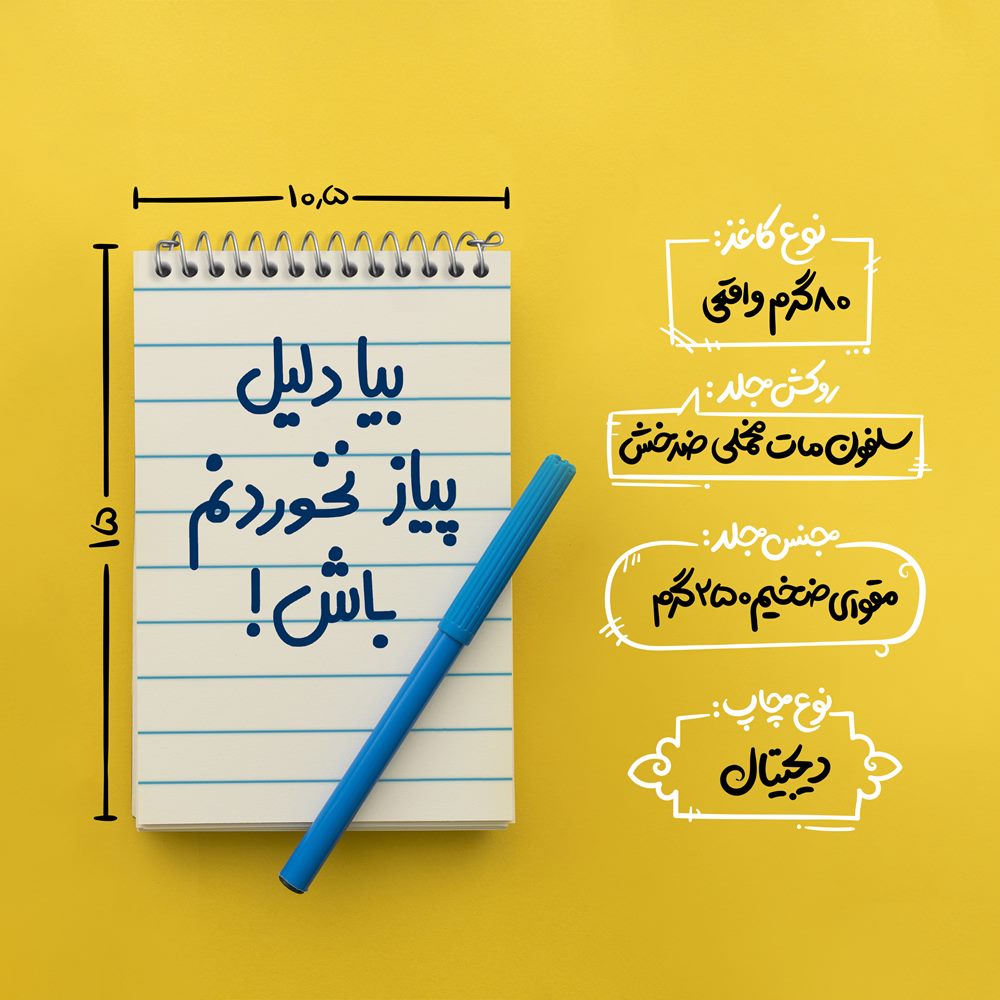 ۱۰٫۵
۱۵
بیا دلیل
پیاز نخوردنم
باش!
نوع کاغذ:
۸۰ گرم واقعی
روکش جلد:
سلفون مات مخملی ضدخش
جنس جلد:
مقوای ضخیم ۲۵۰ گرم
نوع چاپ:
دیجیتال